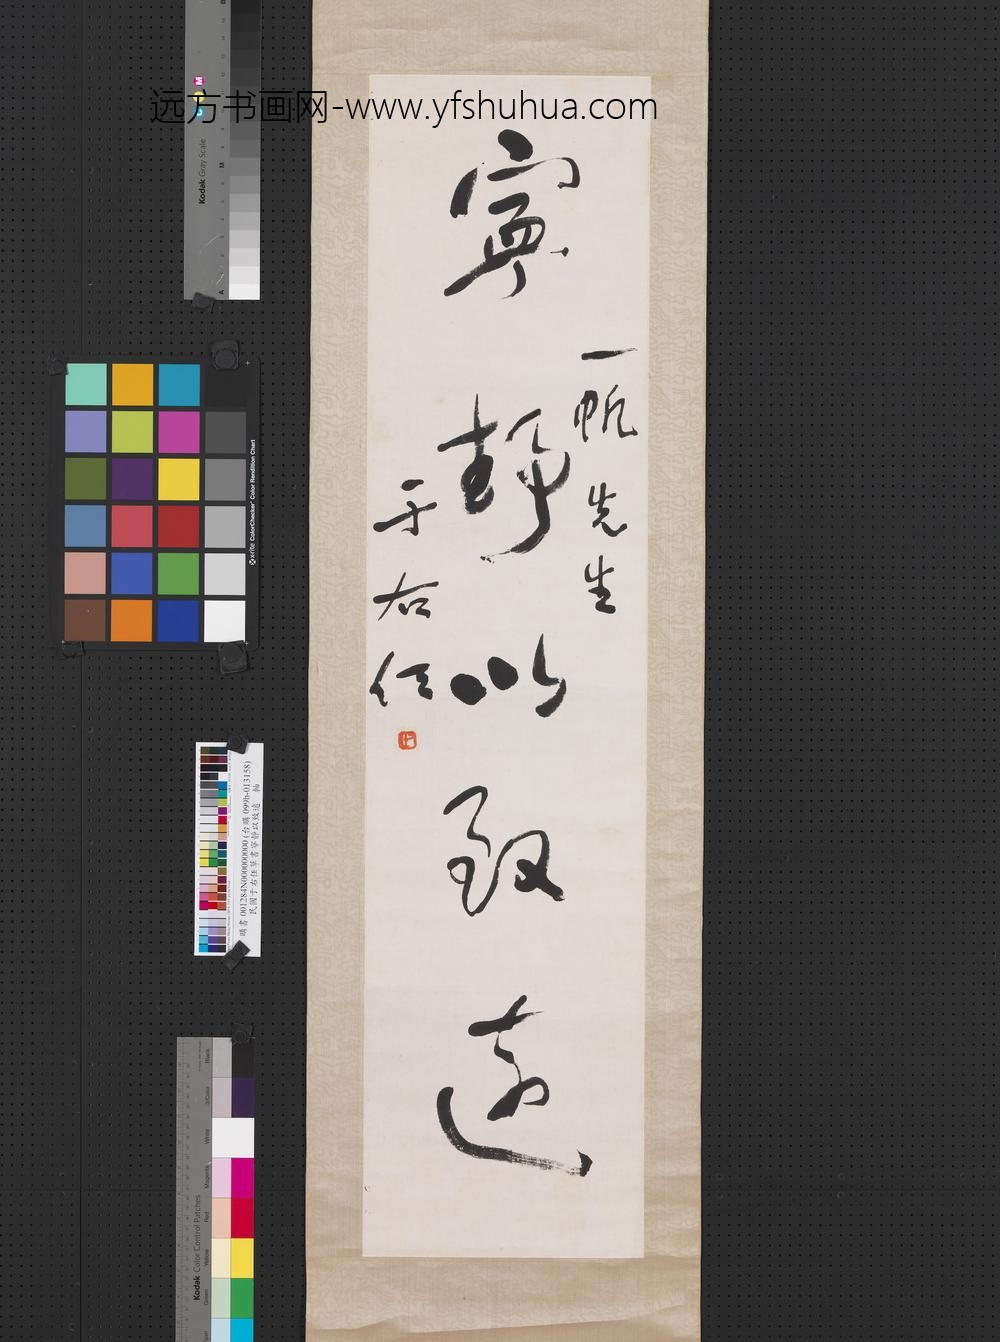 远方书画网-www.yfshuhua.com
寧靜以致遠
一帆先生
于右任
Kodak Gray Scale
A
M
B
M
x-rite ColorChecker Color Rendition Chart
購書 001284N000000000 (台購 099b-013158)
民國于右任草書寧靜以致遠 軸
Kodak Color Control Patches
Black
3/Color
White
Magenta
Red
Yellow
Green